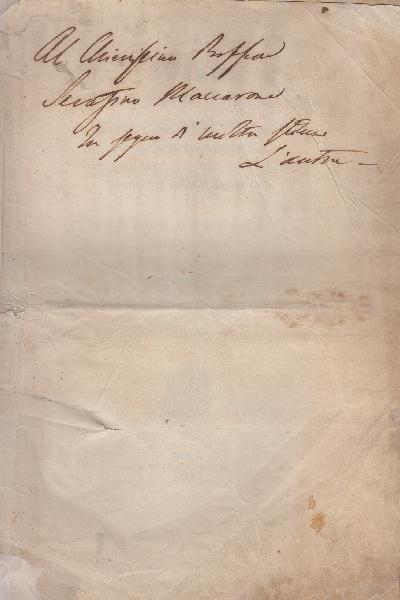 Al Chiarissimo Professor
Serafino Maccarone
In segno di molta stima
L'autore